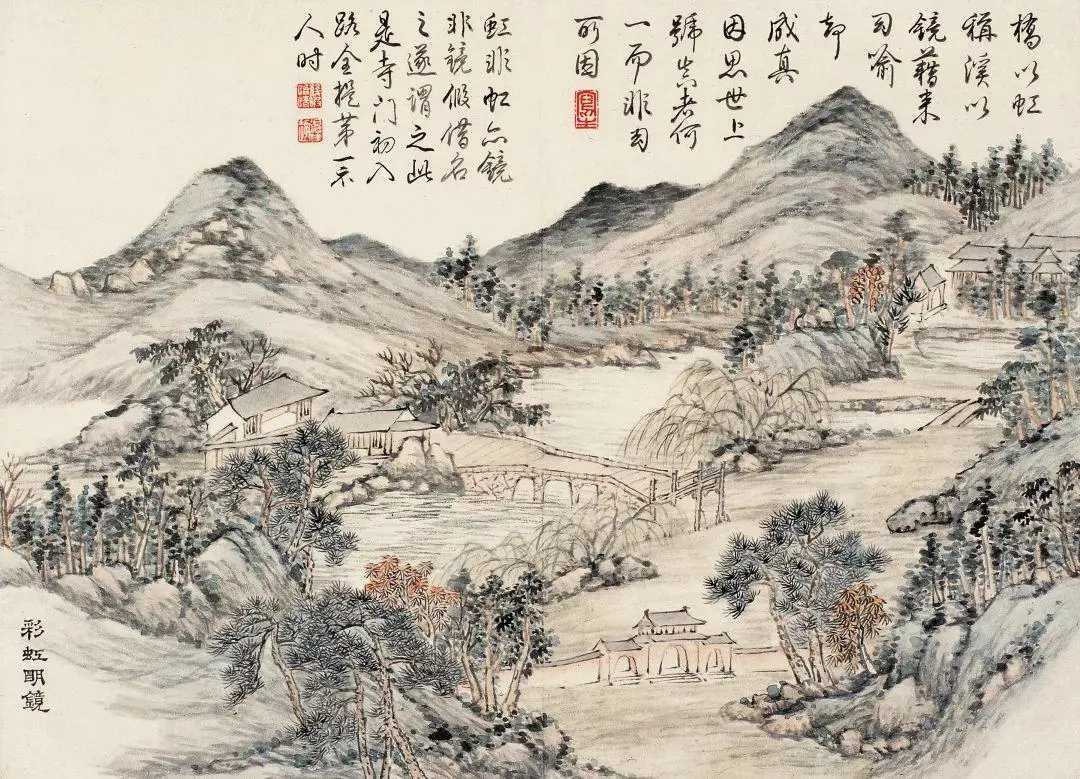 橋以虹
稱溪以
鏡藉来
有喻
却
成真
因思世上
號者何
一而非有
所因
虹非虹亦鏡
非鏡假借名
之遂謂之此
是寺門初入
路全提第一示
人时
彩虹明鏡